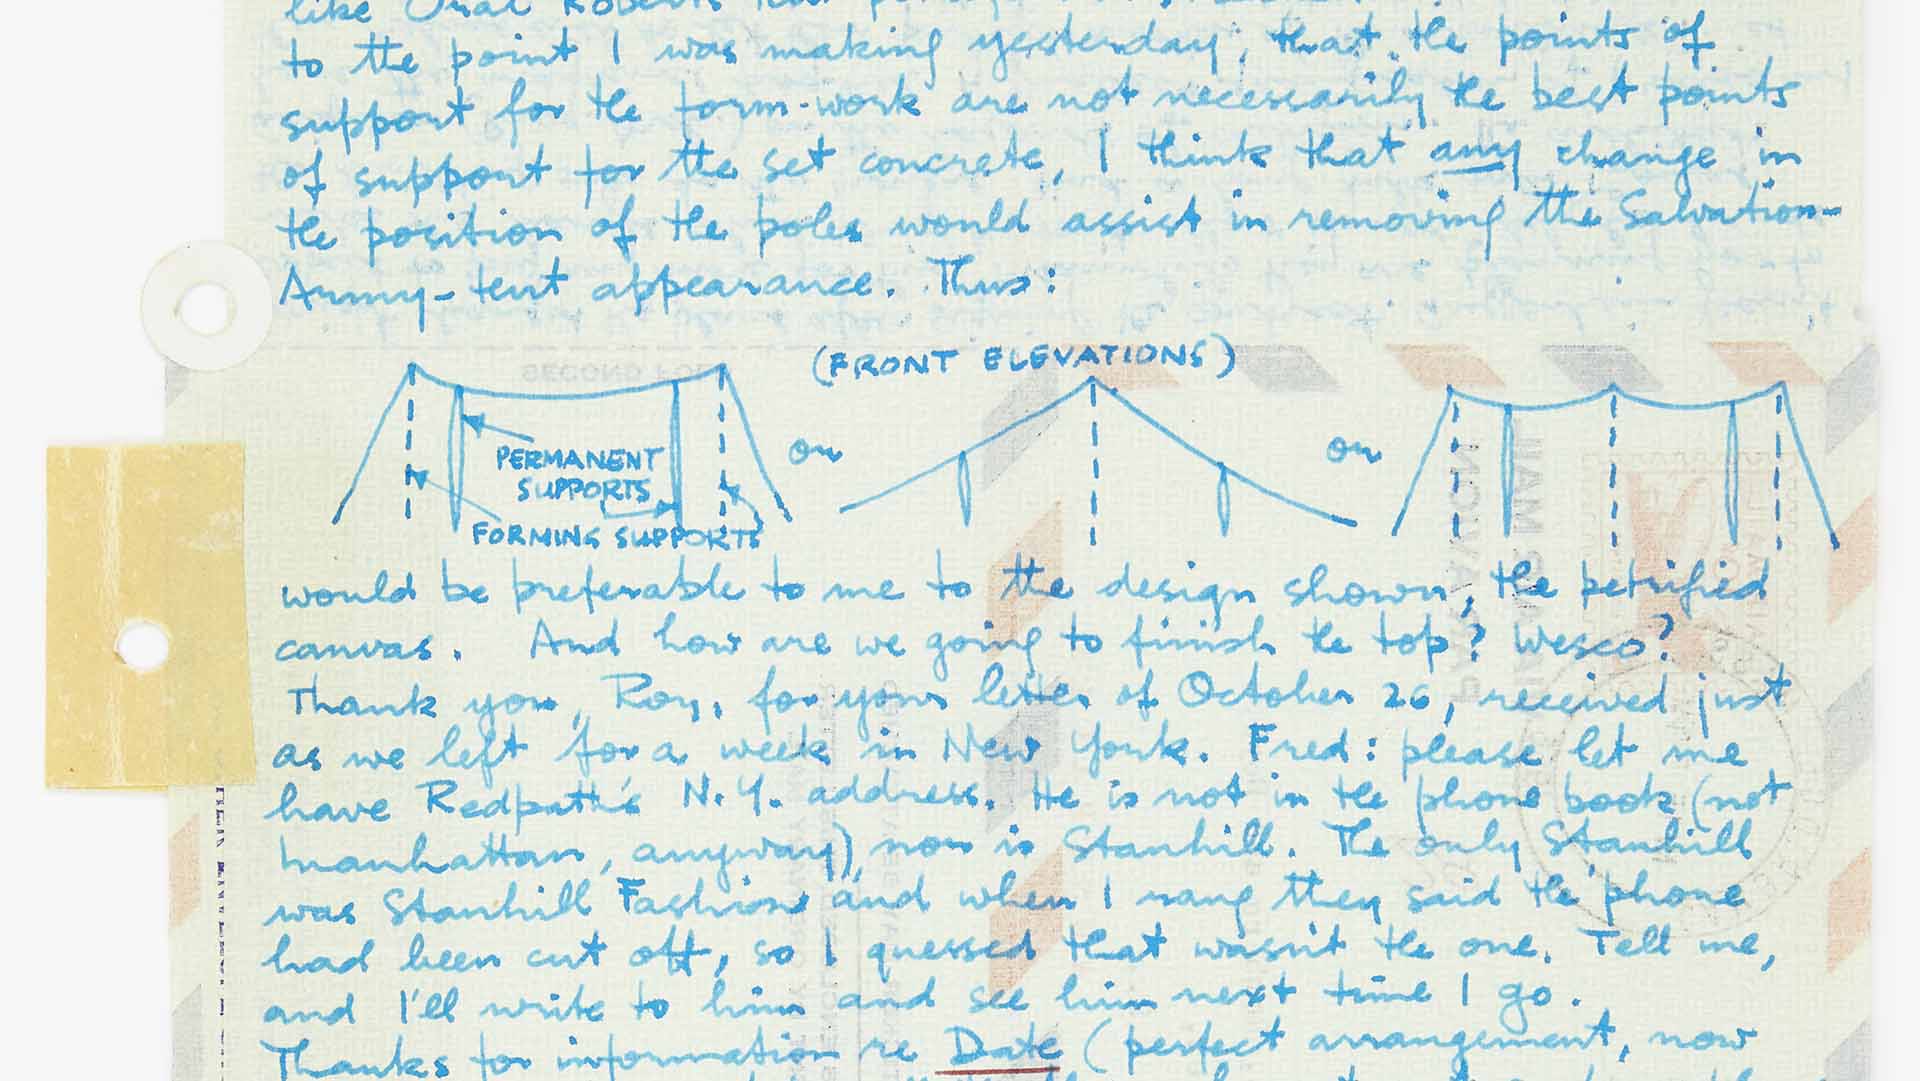 like Oral Roberts
to the point I was making yesterday, that the points of
support for the form-work are not necessarily the best points
of support for the set concrete, I think that any change in
the position of the poles would assist in removing the Salvation-
Army-tent appearance. Thus:
SECOND FOLD
(FRONT ELEVATIONS)
PERMANENT
SUPPORTS
FORMING SUPPORTS
or
or
PAR AVION
would be preferable to me to the design shown, the petrified
canvas. And how are we going to finish the top? Wesco?
Thank you, Roy, for your letter of October 26, received just
as we left for a week in New York. Fred: please let me
have Redpath's N.Y. address. He is not in the phone book (not
Manhattan, anyway), nor is Stanhill. The only Stanhill
was Stanhill Fashions and when I rang they said the phone
had been cut off, so I guessed that wasn't the one. Tell me,
and I'll write to him and see him next time I go.
Thanks for information re Date (perfect arrangement, now